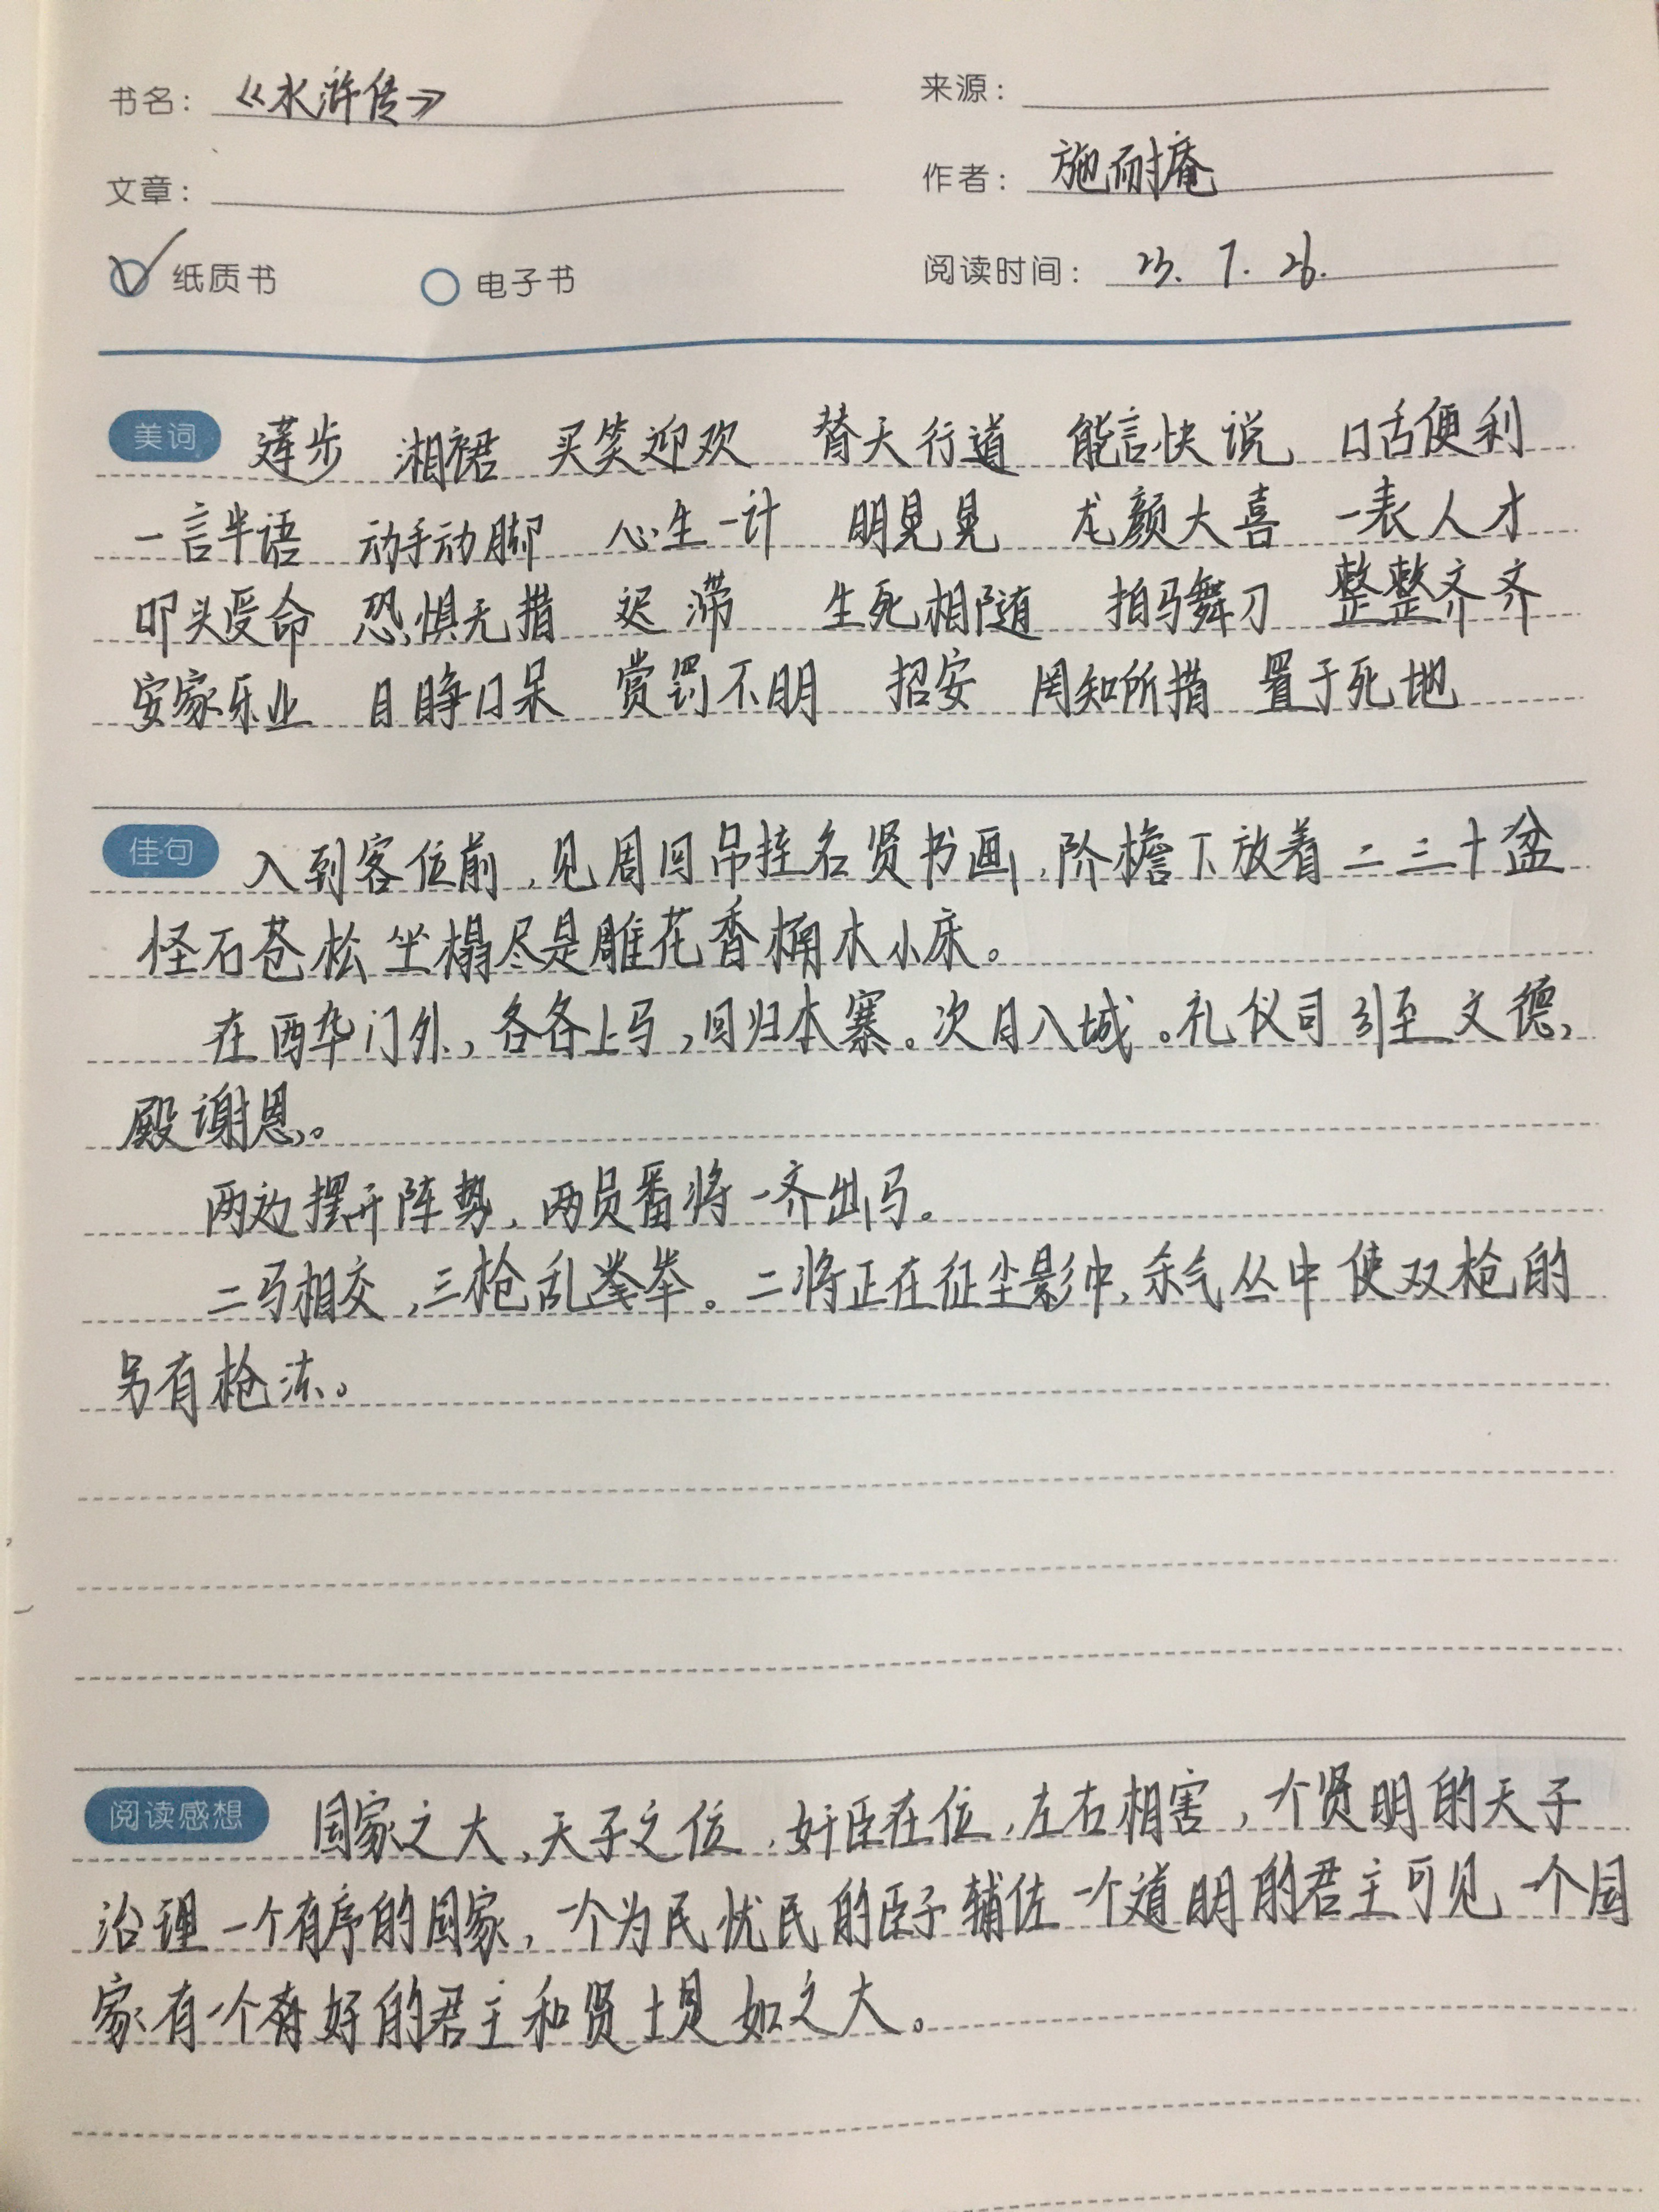 书名： 《水浒传》
来源：
文章：
作者： 施耐庵
纸质书 电子书
阅读时间： 23. 7. 26.
美词 莲步 湘裙 买笑迎欢 替天行道 能言快说 口舌便利
一言半语 动手动脚 心生一计 明晃晃 龙颜大喜 一表人才
叩头受命 恐惧无措 迟滞 生死相随 拍马舞刀 整整齐齐
安家乐业 目睁口呆 赏罚不明 招安 罔知所措 置于死地
佳句 入到客位前，见周回吊挂名贤书画，阶檐下放着二三十盆
怪石苍松坐榻尽是雕花香楠木小床。
在西华门外，各各上马，回归本寨。次日入城。礼仪司引至文德，
殿谢恩。
两边摆开阵势，两员番将一齐出马。
二马相交，三枪乱举。二将正在征尘影中，杀气丛中使双枪的
另有枪法。
阅读感想 国家之大，天子之位，奸臣在位，左右相害，一个贤明的天子
治理一个有序的国家，一个为民忧民的臣子辅佐一个道明的君主可见一个国
家有一个有好的君主和贤士是如之大。